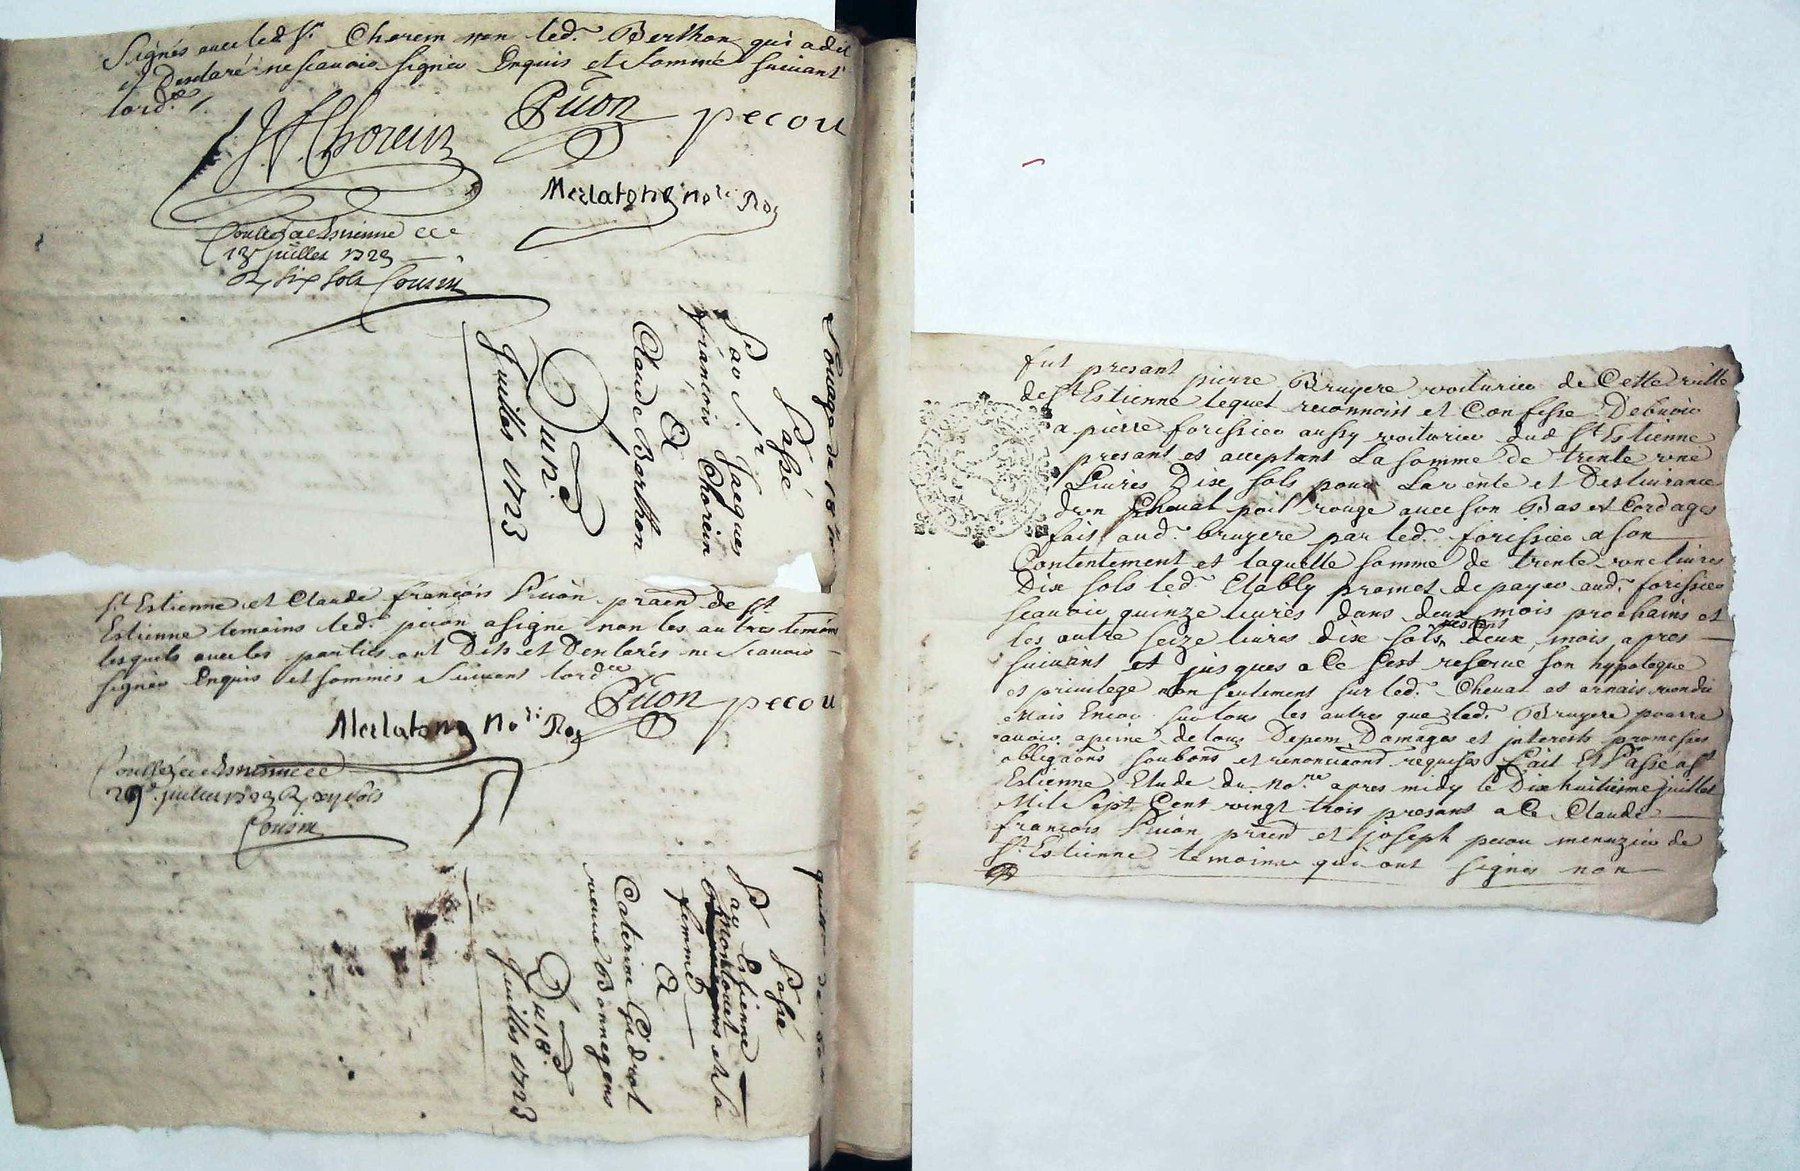 Signés avec led. Sr. Chorein non led. Berthon qui a dit
et Desclaré ne scavoir signer Enquis et sommé suivant
lord.ce
J. f. Chorein
Piion
pecou
Merlatong no.re Roy
Conlle a St Estienne ce
13e juillet 1723
R. six sols Cousin
Louage de
Passé
Par Sr. Jacques
françois Chorein
A
Claude Barthon
Du nd.
Juillet 1723
St. Estienne et Claude françois Piion praend. de St.
Estienne temoins led. piion a signé non les autres temoins
lesquels avec les parties ont Dits et Desclarés ne Scavoir
signer Enquis et sommés Suivant lord.ce
Piion
pecou
Merlatong No.re Roy
Conllé a St Estienne ce
juillet 1723 R. sols
Cousin
Passé
Par Estienne
et Sa
femme
A
Caterine Gidrol
veuve Bonnegens
Du 18e
Juillet 1723
fut presant pierre Bruyere voiturier de Cette ville
de St. Estienne lequel reconnoist et Confesse Debvoir
a pierre forissier aussy voiturier dud St. Estienne
presant et acceptant La somme de trente une
Livres Dix sols pour La vente et Deslivrance
dun Cheval poil rouge avec son Bas et Cordages
fais aud. bruyere par led. forissier a son
Contentement et laquelle somme de trente une livres
Dix sols led. Etably promet de payer aud. forissier
scavoir quinze livres dans deux mois prochains et
les autre seize livres dix sols restant deux mois apres
suivant et jusques a Ce sest reservé son hypoteque
et privilege non seulement sur led. Cheval et arnais vendu
Mais Encor sur tous les autres que led. Bruyere pourra
avoir a peine de tous Depem Domages et interests promesses
obligaons soubons et renonciaons requises fait Et Passé a St.
Estienne Etude du No.re apres midy le Dix huitieme juillet
Mil Sept Cent vingt trois presant a Ce Claude
françois Piion praend et joseph pecou menuzier de
St. Estienne temoins qui ont signés non